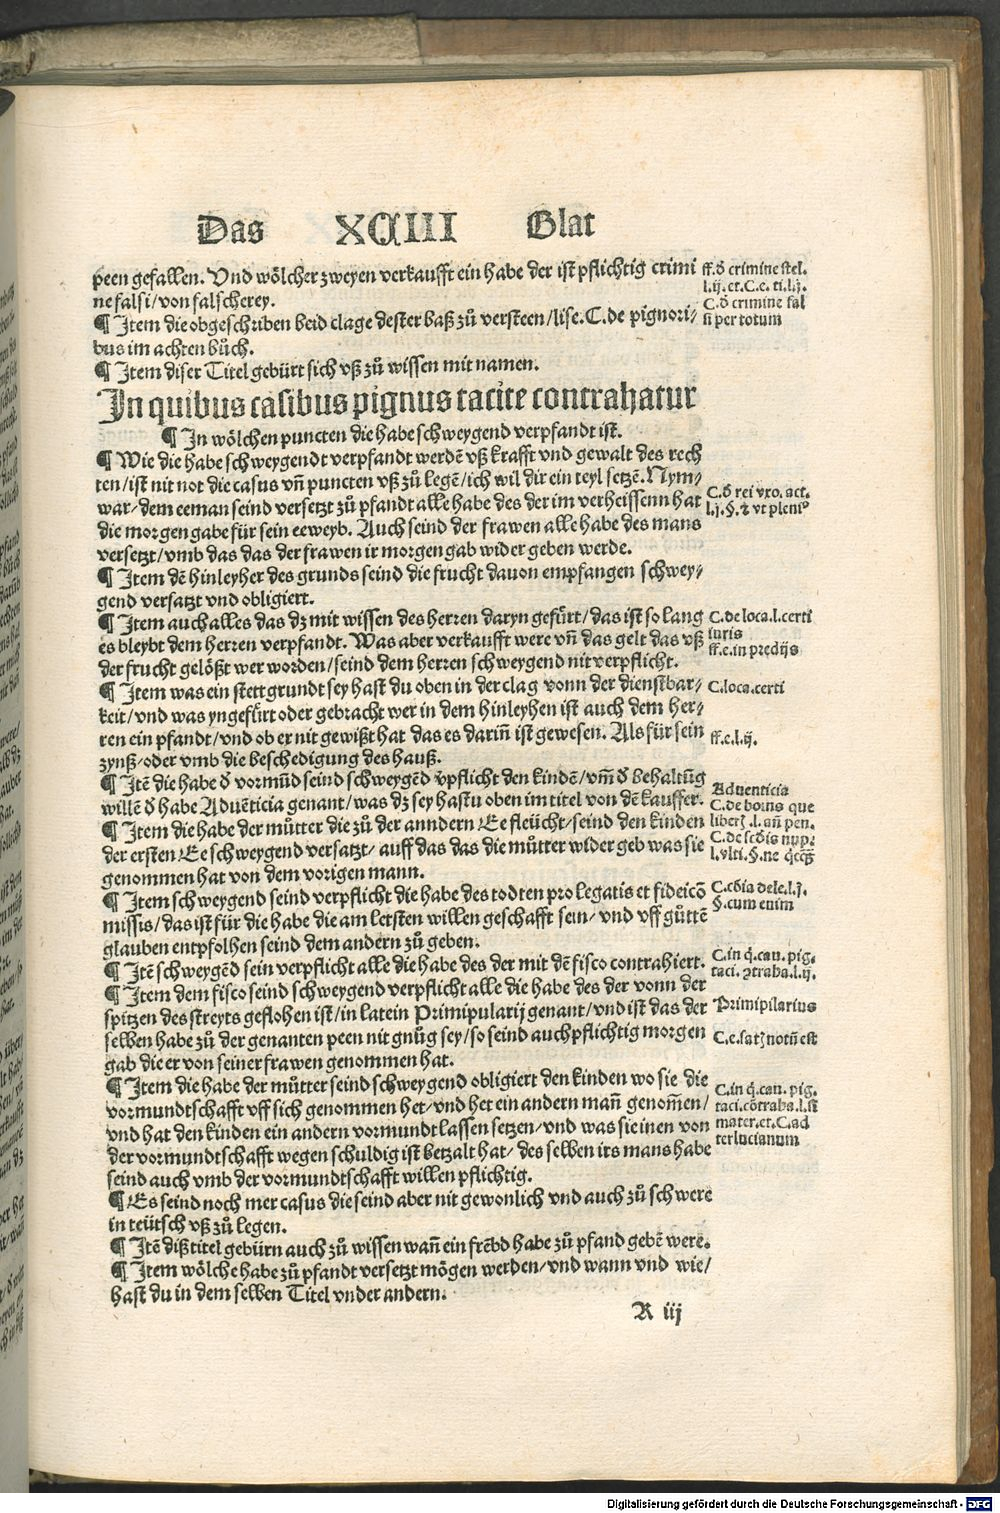 Das XCIIII Blat
peen gefallen. Vnd wölcher zweyen verkaufft ein habe der ist pflichtig crimi
ne falsi/von falscherey.
¶ Item die obgeschriben beid clage dester baß zů versteen/lise. C. de pignori/
bus im achten bůch.
¶ Item diser Titel gebürt sich vß zů wissen mit namen.
In quibus casibus pignus tacite contrahatur
¶ In wölchen puncten die habe schweygend verpfandt ist.
¶ Wie die habe schweygendt verpfandt werdē vß krafft vnd gewalt des rech
ten/ist nit not die casus vñ puncten vß zů legē/ich wil dir ein teyl setzē. Nym/
war/dem eeman seind versetzt zů pfandt alle habe des der im verheissenn hat
die morgengabe für sein eeweyb. Auch seind der frawen alle habe des mans
versetzt/vmb das das der frawen ir morgengab wider geben werde.
¶ Item dē hinleyher des grunds seind die frucht dauon empfangen schwey/
gend versatzt vnd obligiert.
¶ Item auch alles das dz mit wissen des herren daryn gefürt/das ist so lang
es bleybt dem herren verpfandt. Was aber verkaufft were vñ das gelt das vß
der frucht gelößt wer worden/seind dem herren schweygend nit verpflicht.
¶ Item was ein stett grundt sey hast du oben in der clag vonn der dienstbar/
keit/vnd was yngefürt oder gebracht wer in dem hinleyhen ist auch dem her/
ren ein pfandt/vnd ob er nit gewißt hat das es dariñ ist gewesen. Als für sein
zynß/oder vmb die beschedigung des hauß.
¶ Itē die habe ð vormūd seind schweygēd v̄pflicht den kindē/vm̄ ð behaltūg
willē ð habe Aduēticia genant/was dz sey hastu oben im titel von dē kauffer.
¶ Item die habe der můtter die zů der anndern Ee fleücht/seind den kinden
der ersten Ee schweygend versatzt/ auff das das die můtter wider geb was sie
genommen hat von dem vorigen mann.
¶ Item schweygend seind verpflicht die habe des todten pro legatis et fideicō
missis/das ist für die habe die am letsten willen geschafft sein/ vnd vff gůttē
glauben entpfolhen seind dem andern zů geben.
¶ Itē schweygēd sein verpflicht alle die habe des der mit dē fisco contrahiert.
¶ Item dem fisco seind schweygend verpflicht alle die habe des der vonn der
spitzen des streyts geflohen ist/in latein Primipularij genant/vnd ist das der
selben habe zů der genanten peen nit gnůg sey/so seind auch pflichtig morgen
gab die er von seiner frawen genommen hat.
¶ Item die habe der můtter seind schweygend obligiert den kinden wo sie die
vormundtschafft vff sich genommen het/vnd het ein andern mañ genom̄en/
vnd hat den kinden ein andern vormundt lassen setzen/vnd was sie inen von
der vormundtschafft wegen schuldig ist betzalt hat/ des selben irs mans habe
seind auch vmb der vormundtschafft willen pflichtig.
¶ Es seind noch mer casus die seind aber nit gewonlich vnd auch zů schwere
in teütsch vß zů legen.
¶ Itē diß titel gebürn auch zů wissen wañ ein frēbd habe zů pfand gebē were.
¶ Item wölche habe zů pfandt versetzt mögen werden/vnd wann vnd wie/
hast du in dem selben Titel vnder andern.
R iij
ff. ð crimine stel.
l.ij. et. C. e. ti. l.j.
C. ð crimine fal
per totum
C. ð rei vxo. act.
C. de loca. l. certi
iuris
ff. e. in predijs
C. loca. certi
ff. e. l. ij.
Aduenticia
C. de bonis que
pen.
C. de
§. cum enim
pig.
Primipilarius
C. e. est
pig.
mater. et. C. ad
tertucianum
Digitalisierung gefördert durch die Deutsche Forschungsgemeinschaft - DFG